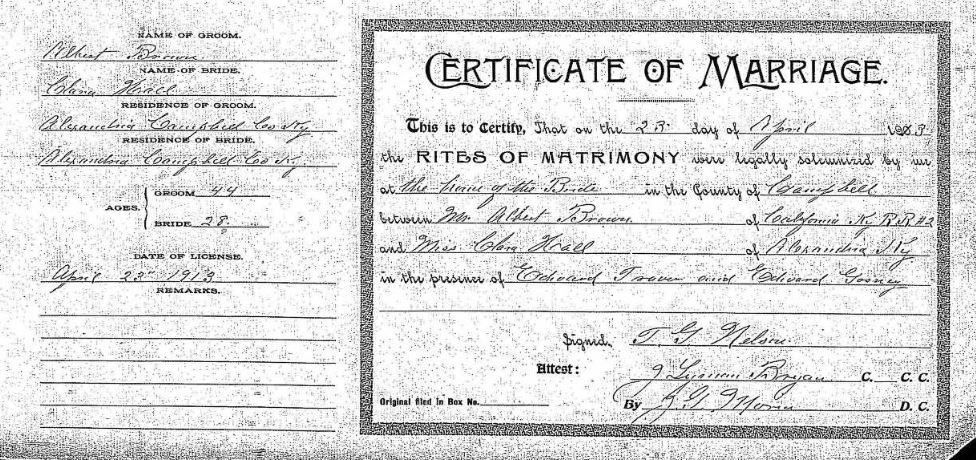 NAME OF GROOM.
Albert Brown
NAME OF BRIDE.
Clara Hall
RESIDENCE OF GROOM.
Alexandria Campbell Co Ky
RESIDENCE OF BRIDE.
Alexandria Campbell Co Ky
AGES. GROOM 44
BRIDE 28
DATE OF LICENSE.
April 23rd 1913
REMARKS.
CERTIFICATE OF MARRIAGE.
This is to Certify, That on the 23 day of April 1913
the RITES OF MATRIMONY were legally solemnized by me
at the home of the Bride in the County of Campbell
between Mr Albert Brown of California Ky R.R.#2
and Miss Clara Hall of Alexandria Ky
in the presence of Edward and Edward Gosney
Signed, T. G. Nelson
Attest: J Lyman Bryan C. C. C.
By D. C.
Original filed in Box No.